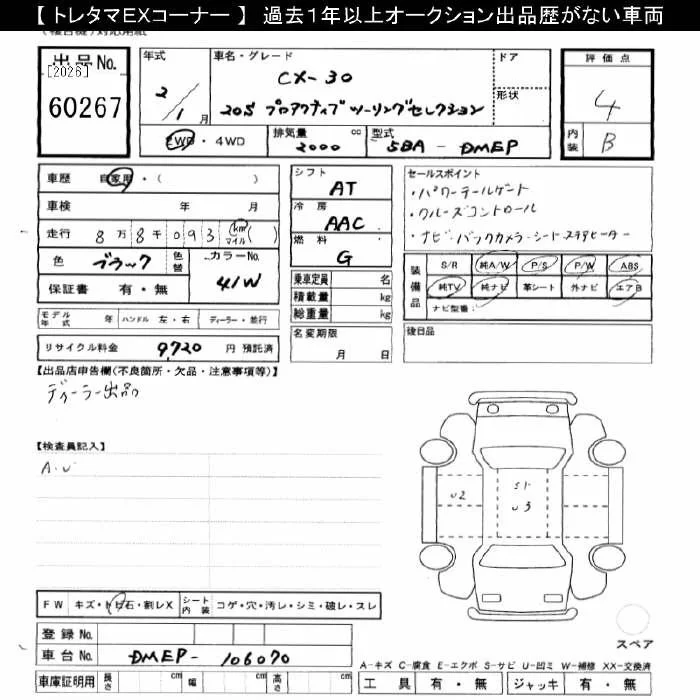 【 トレタマEXコーナー 】 過去1年以上オークション出品歴がない車両
出品No.
[2026]
60267
年式
2/1月
車名・グレード
CX-30
20S プロアクティブツーリングセレクション
ドア
形状
評価点
4
内装 B
2WD・4WD
排気量 2000 cc
型式 5BA - DMEP
車歴 自家用・( )
車検 年 月
走行 8万8千093 km マイル( )
色 ブラック 色替 カラーNo. 41W
保証書 有・無
シフト AT
冷房 AAC
燃料 G
乗車定員 名
積載量 kg
総重量 kg
セールスポイント
・パワーテールゲート
・クルーズコントロール
・ナビ・バックカメラ・シートステアヒーター
装備品
S/R 純A/W P/S P/W ABS
純TV 純ナビ 革シート 外ナビ エアB
ナビ型番:
モデル年式 年 ハンドル 左・右 ディーラー・並行
名変期限 月 日
後日品
リサイクル料金 9720 円 預託済
【出品店申告欄(不良箇所・欠品・注意事項等)】
ディーラー出品
【検査員記入】
A.U
U2
S1
U3
FW キズ・トビ石・割レX シート内装 コゲ・穴・汚レ・シミ・破レ・スレ
スペア
登録No.
車台No. DMEP-106070
A-キズ C-腐食 E-エクボ S-サビ U-凹ミ W-補修 XX-交換済
車庫証明用 長さ cm 幅 cm 高さ cm
工具 有・無 ジャッキ 有・無